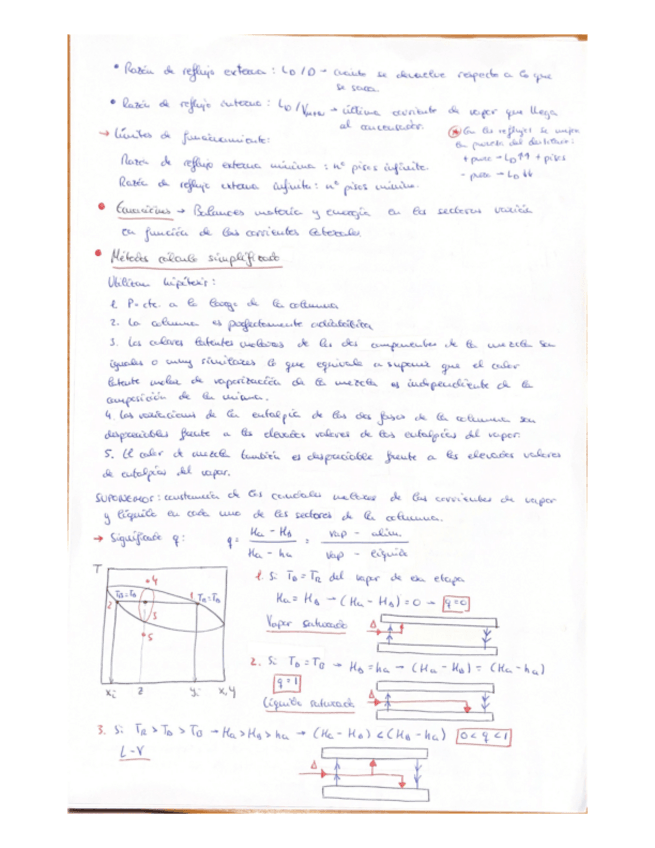 • Razón de reflujo externa: L₀/D → cuánto se devuelve respecto a lo que
se saca.
• Razón de reflujo interna: L₀/V → última corriente de vapor que llega
al condensador.
⊛ En los reflujos se
en pureza del destilado:
+ pureza → L₀↑↑ + pisos
- pureza → L₀↓↓
→ Límites de funcionamiento:
Razón de reflujo externa mínima: nº pisos infinito.
Razón de reflujo externa infinita: nº pisos mínimo.
• Ecuaciones → Balances materia y energía en los sectores varían
en función de las corrientes laterales.
• Métodos cálculo simplificado
Utilizan hipótesis:
1. P = cte. a lo largo de la columna
2. La columna es perfectamente adiabática
3. Los calores latentes molares de los dos componentes de la mezcla son
iguales o muy similares lo que equivale a suponer que el calor
latente molar de vaporización de la mezcla es independiente de la
composición de la misma.
4. Las variaciones de la entalpía de las dos fases de la columna son
despreciables frente a los elevados valores de las entalpías del vapor.
5. El calor de mezcla también es despreciable frente a los elevados valores
de entalpías del vapor.
SUPONEMOS: constancia de los caudales molares de las corrientes de vapor
y líquido en cada uno de los sectores de la columna.
→ Significado q: q = (Ha - HB)/(Ha - ha) = (vap - alim.)/(vap - líquido)
T
4
2
1
3
5
xi z yi x, y
1. Si TB = TR del vapor de esa etapa
Ha = HB → (Ha - HB) = 0 → q=0
Vapor saturado
Δ
2. Si TB = TB → HB = ha → (Ha - HB) = (Ha - ha)
q=1
Líquido saturado
Δ
3. Si TR > TB > TB → Ha > HB > ha → (Ha - HB) < (Ha - ha) 0 < q < 1
L-V
Δ